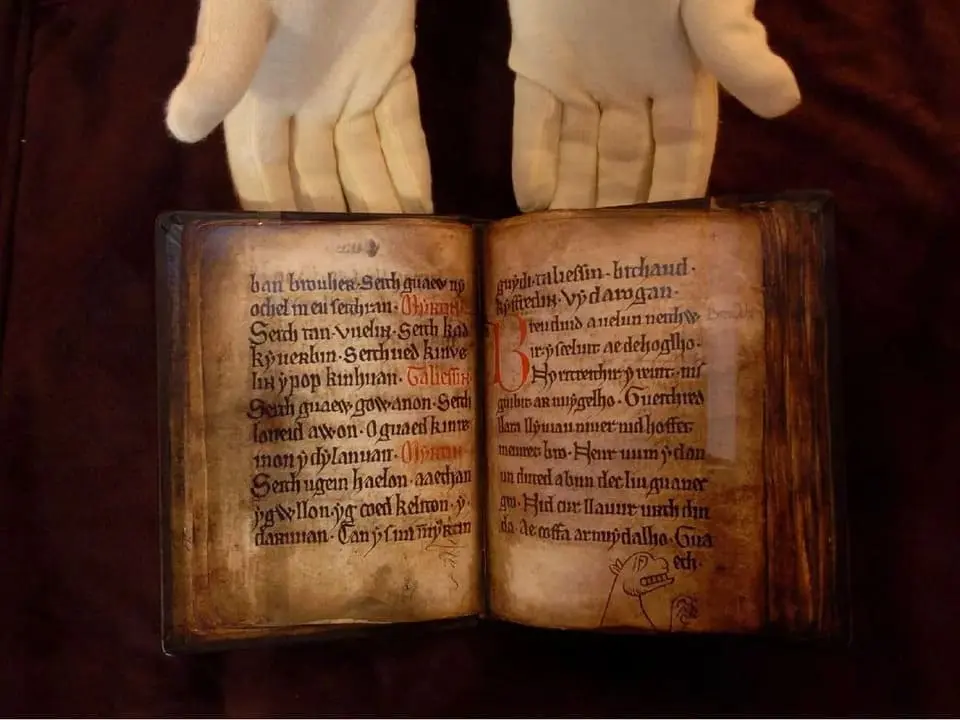 ban brouher. Seith guaew ny
ochel in eu seithran. Myrtin.
Seith tan. vuelin. Seith kad
kyuerbin. Seithued kinve
lin y pop kinhuan. Taliessin.
Seith guaew gowanon. Seith
loneid awon. O guaed kinre
inon y dylanuan. Myrtin.
Seith ugein haelon. aaethan
ygwllon. yg coed keliton. y
daruuan. Can ys mi myrtin
guydi. taliessin. bithaud.
kyffredin. vy darogan.
Breuduid a uelun neithw
ir. ys celuit ae dehoglho.
Ny ritreithir y reuit. nis
guibit ar nuy gelho. Gueithred
llara llyuiau niuer nid hoffet
meiuret bro. Neur uum y dan
un duted a bun dec liu guanec
gro. Nid eur llauur urth din
da. Ae coffa ar nuy dalho. Gua
ech.